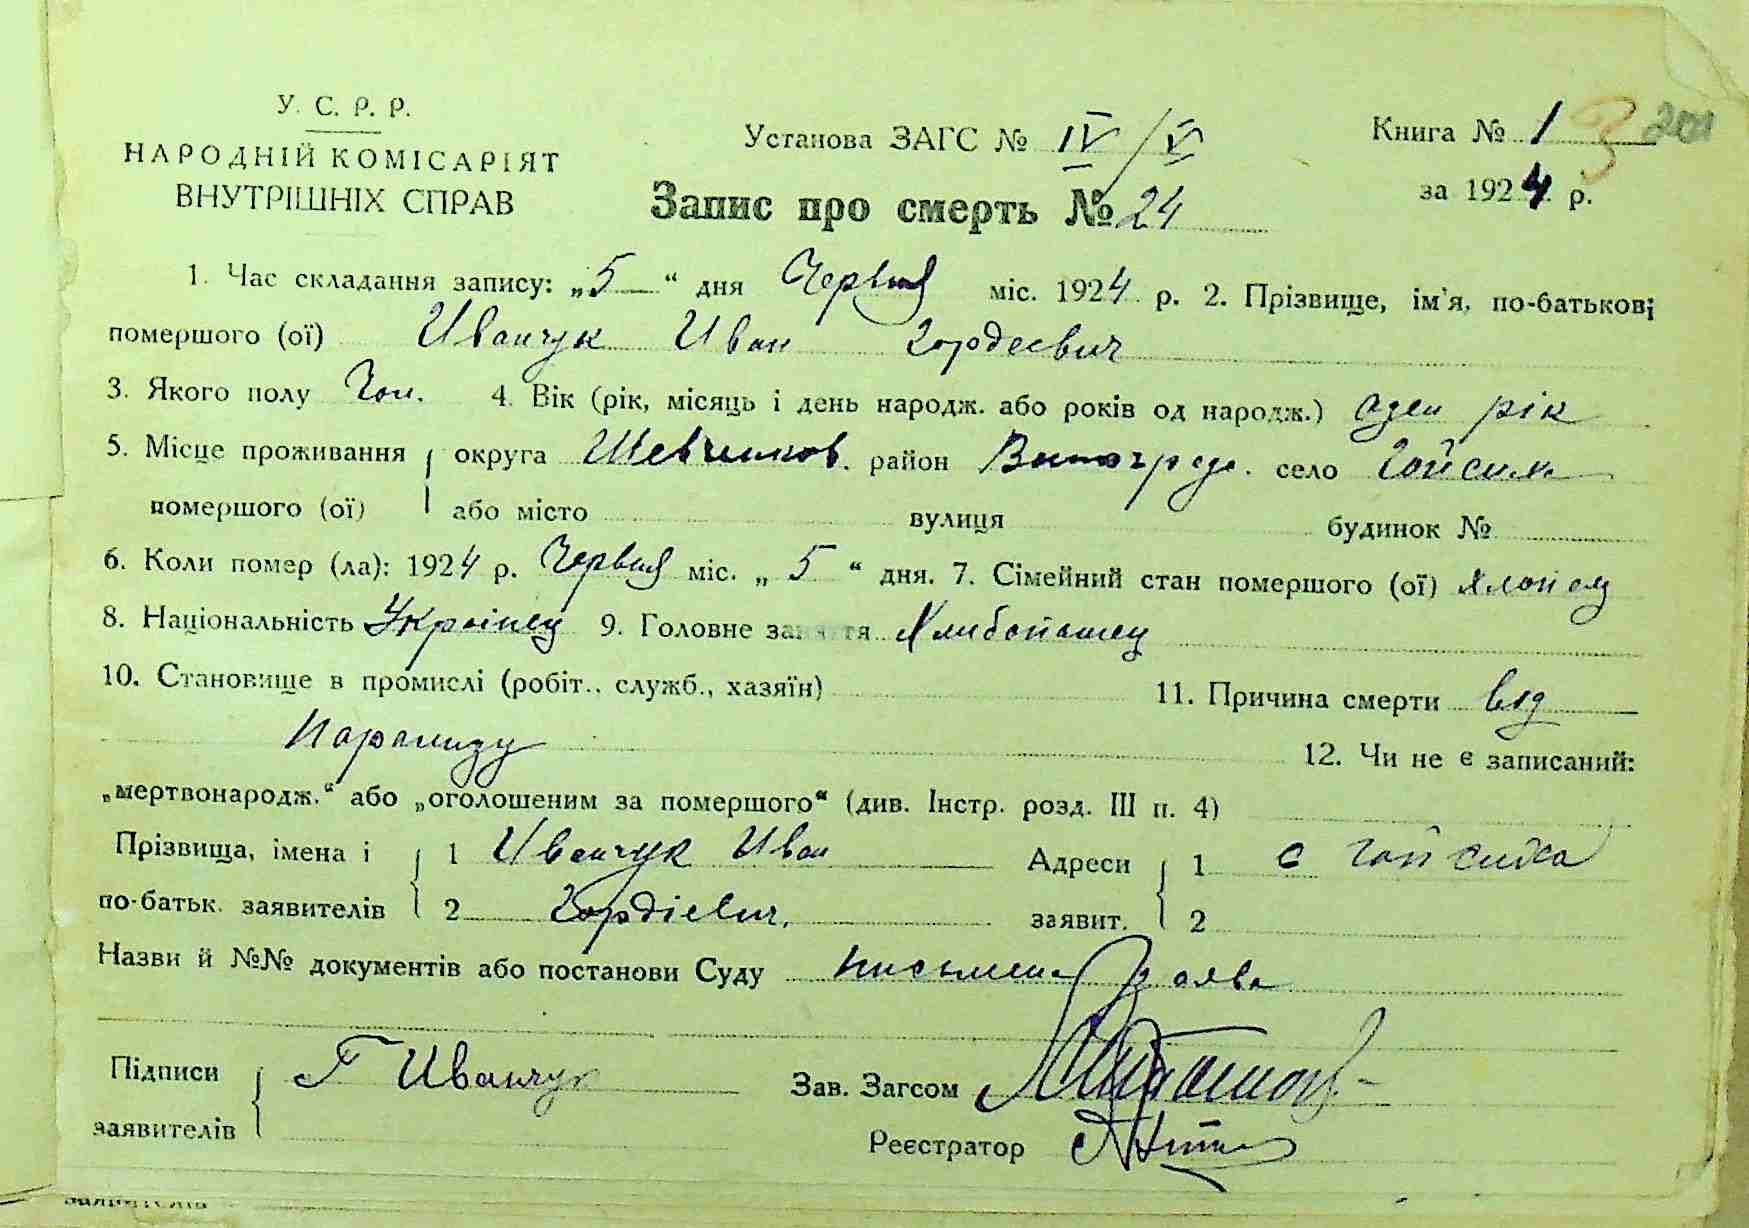 У. С. Р. Р.
НАРОДНІЙ КОМІСАРІЯТ
ВНУТРІШНІХ СПРАВ
Установа ЗАГС № IV/V
Книга № 1 3 201
за 1924 р.
Запис про смерть № 24
1. Час складання запису: „5“ дня Червня міс. 1924 р. 2. Прізвище, ім'я, по-батькові
помершого (ої) Иванчук Иван Гордеевич
3. Якого полу Чол. 4. Вік (рік, місяць і день народж. або років од народж.) оден рік
5. Місце проживання округа Шевченков. район Виноград. село
помершого (ої) або місто вулиця будинок №
6. Коли помер (ла): 1924 р. Червня міс. „5“ дня. 7. Сімейний стан помершого (ої) хлопец
8. Національність Українец 9. Головне заняття Хлибопашец
10. Становище в промислі (робіт.. служб., хазяїн) 11. Причина смерти вид
12. Чи не є записаний:
„мертвонародж.“ або „оголошеним за помершого“ (див. Інстр. розд. III п. 4)
Прізвища, імена і 1 Иванчук Иван Адреси 1 с
по-батьк. заявителів 2 Гордієвич. заявит. 2
Назви й №№ документів або постанови Суду письмена заява
Підписи Г Иванчук Зав. Загсом
заявителів Реєстратор
заявителів